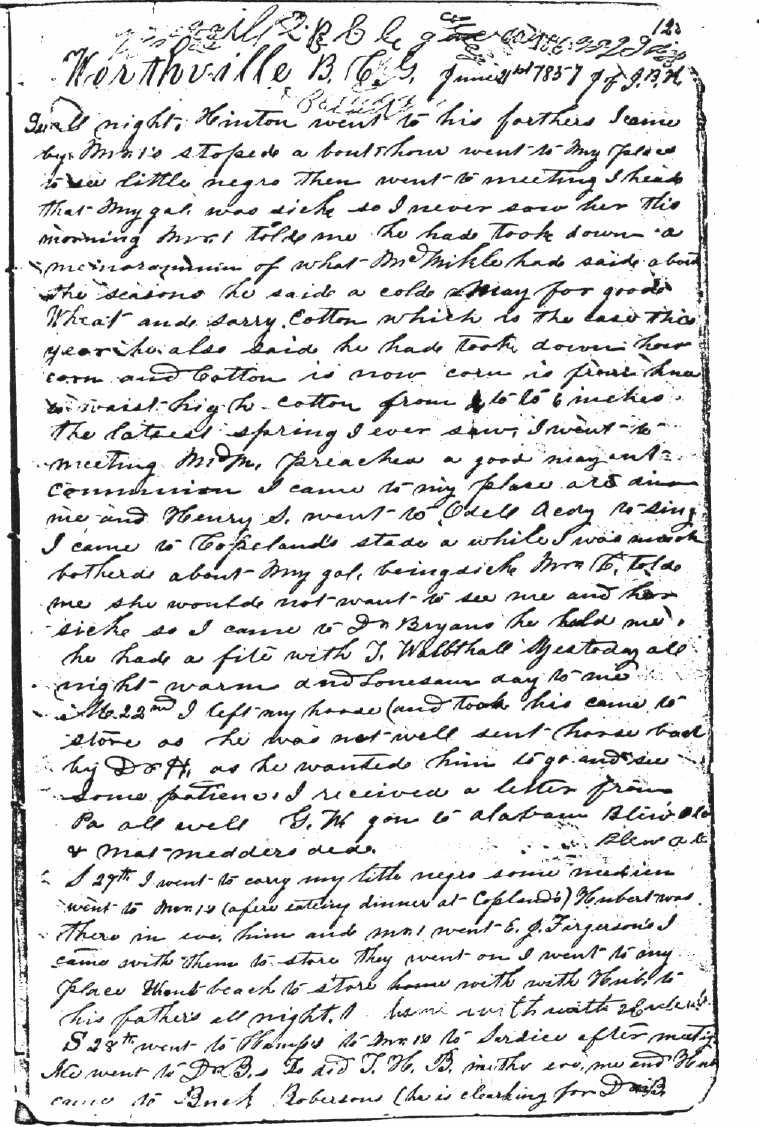 123
Worthville B. C. G. June 21st 1857 J of J.B.H.
all night. Hinton went to his farthers I came
by Mr 1s stopede a bout 1 hour went to My place
to see little negro then went to meeting I heard
that My gal. was sicke so I never saw her this
morning Mr. 1 tolde me he had took down a
memoraqnuim of what Mc Mikle had said about
the seasons he said a colde May for goode
Wheat ande sarry Cotton which is the case this
year he also said he had took down how
corn and Cotton is now corn is from knee
to waist high cotton from 4 to 6 inches
the latsest spring I ever saw. I went to
meeting McM. preached a good many at
Communion I came to my place
me and Henry S. went to Odell Acdy to sing
I came to Copeland's stade a while I was much
botherde about My gal. being sicke Mrs C. tolde
me she woulde not want to see me and her
sicke so I came to Dr Bryans he told me
he had a fite with T. Walbthall Yestoday all
night warm and Lonesaum day to me
M. 22nd I left my horse (and took his came to
store as he was not well sent horse back
by Dr H. as he wanted him to go and see
some patience. I received a letter from
Pa all well G. M gon to alabam
& Mat medders ded.
S 27th I went to carry my little negro some medicin
went to Mr 1s (afere eateing dinner at Copland's) Hubert was
there in eve. him and Mr 1 went E. J. Firgerson's I
came with them to store they went on I went to my
place Went beack to store home with with Hub. to
his father's all night.
S 28th went to Hamps to Mr 1s to Serdice after meeting
He went to Dr B.s So did T. H. B. in the eve. me and Hub
came to Buck Robersons (he is clearking for Dr B.